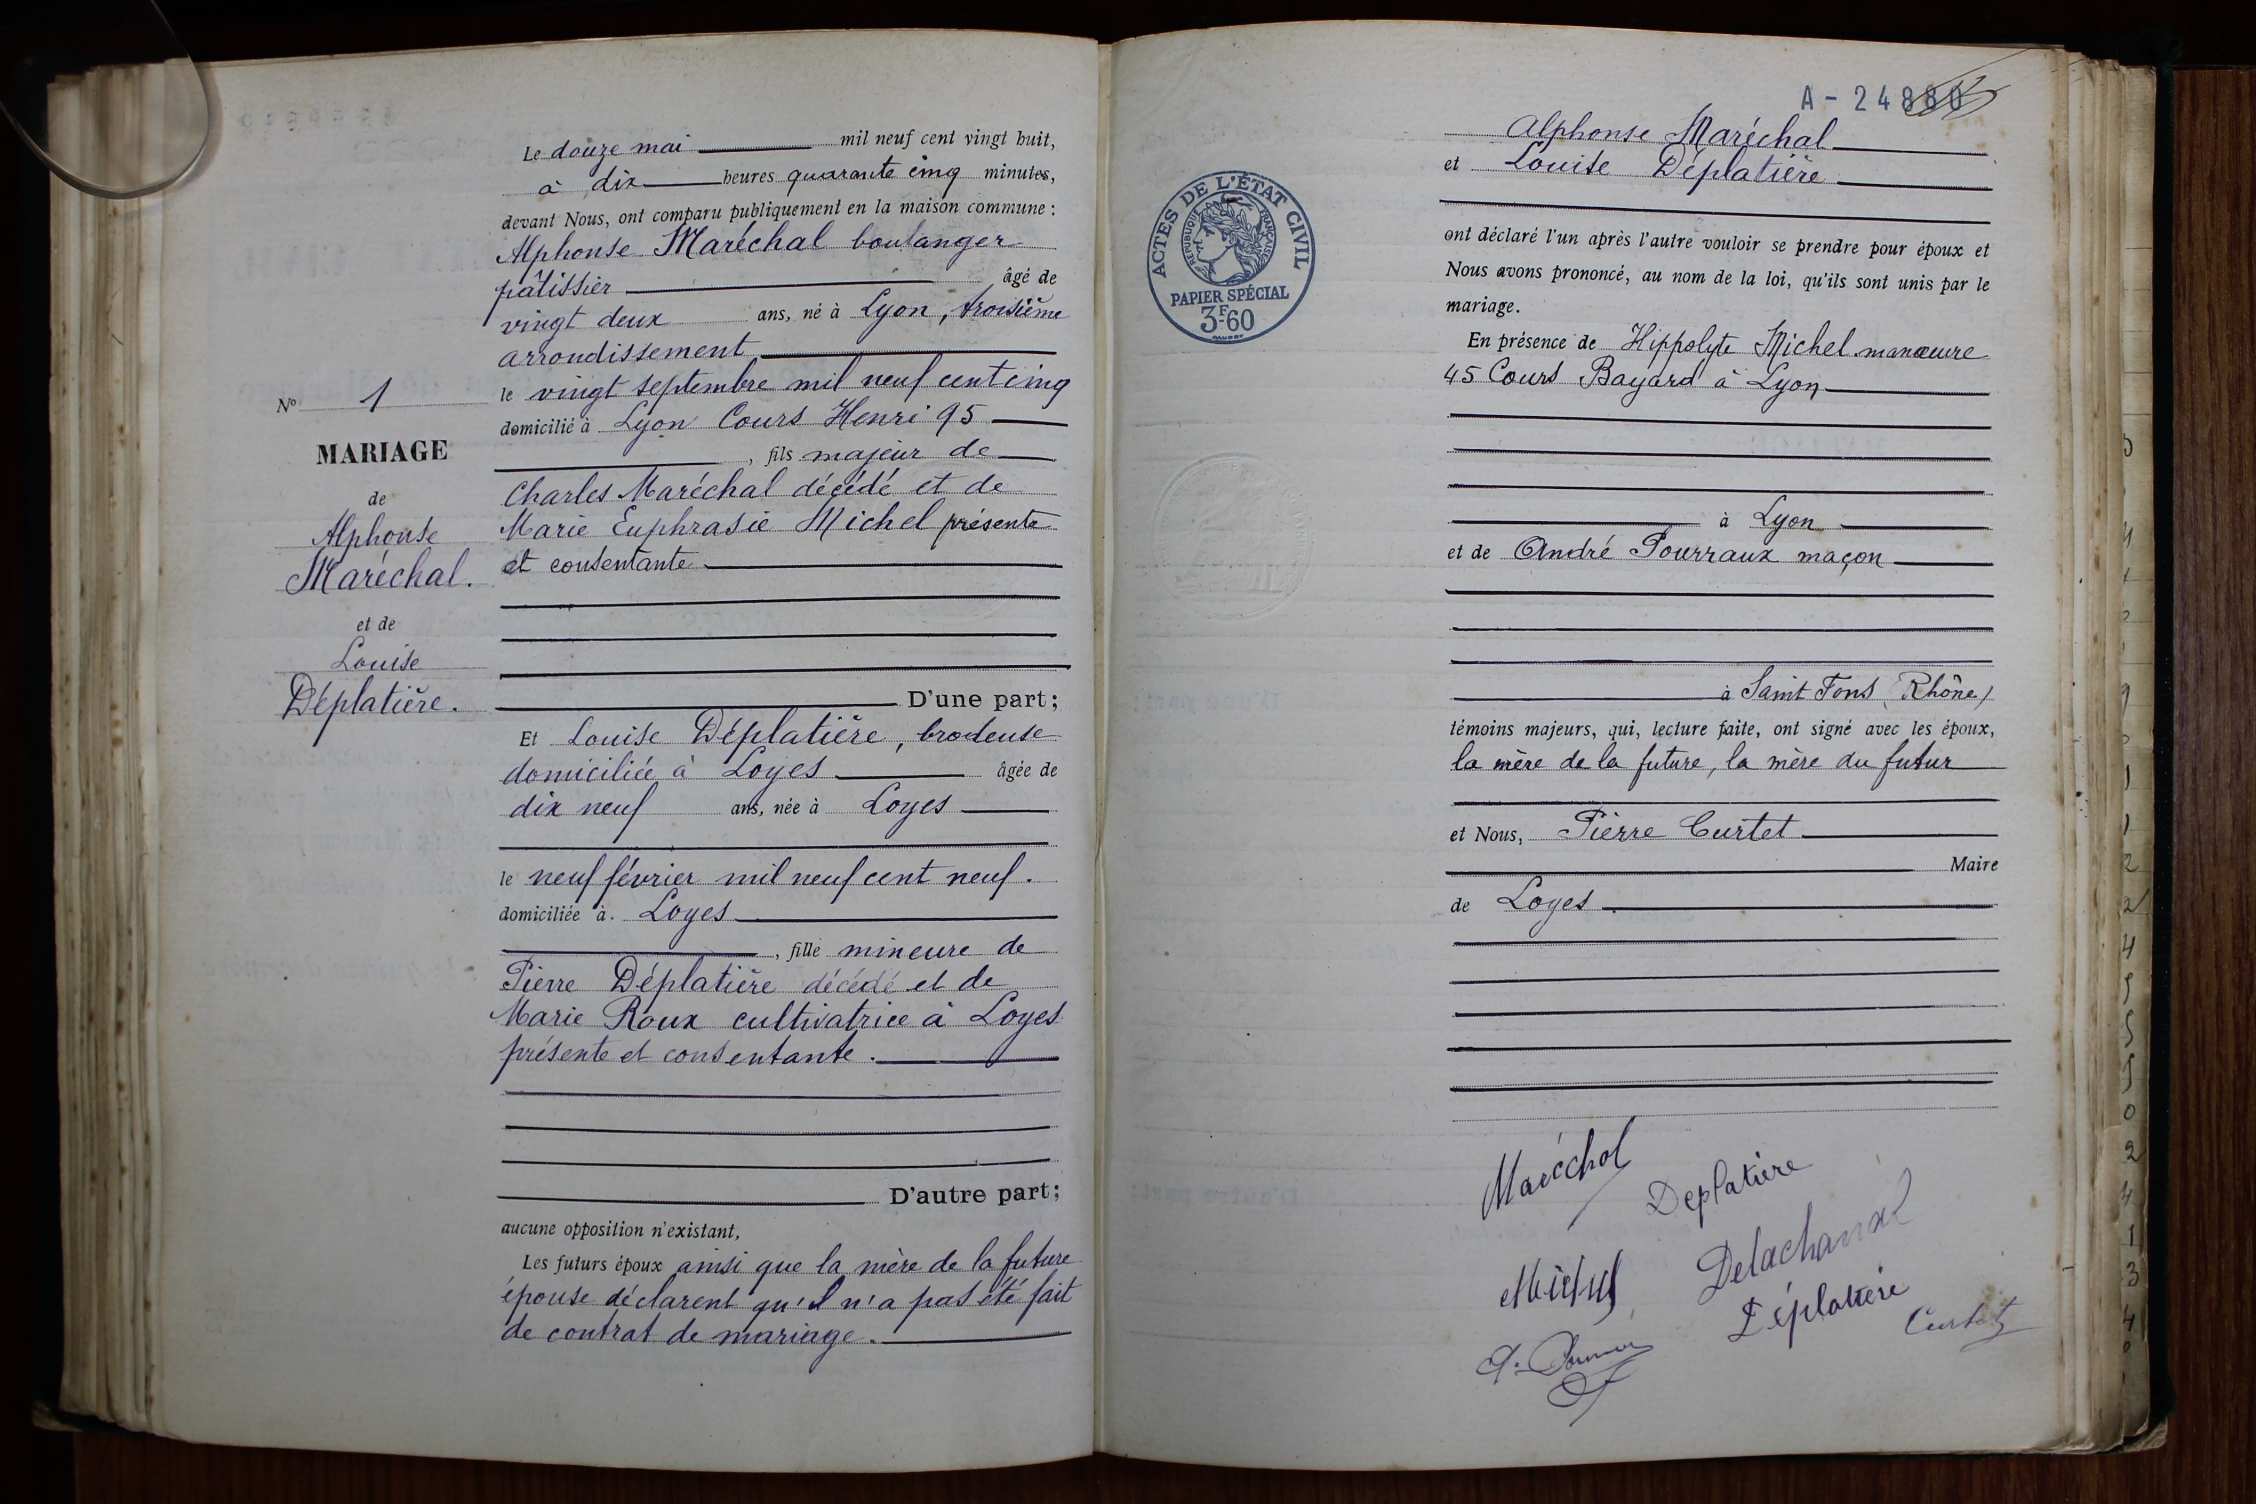 Le douze mai mil neuf cent vingt huit,
à dix heures quarante cinq minutes,
devant Nous, ont comparu publiquement en la maison commune :
Alphonse Maréchal boulanger
pâtissier âgé de
vingt deux ans, né à Lyon, troisième
arrondissement
le vingt septembre mil neuf cent cinq
domicilié à Lyon Cours Henri 95
, fils majeur de
Charles Maréchal décédé et de
Marie Euphrasie Michel présente
et consentante
D'une part;
Et Louise Déplatière, brodeuse
domiciliée à Loyes âgée de
dix neuf ans, née à Loyes
le neuf février mil neuf cent neuf.
domiciliée à. Loyes
, fille mineure de
Pierre Déplatière décédé et de
Marie Roux cultivatrice à Loyes
présente et consentante.
D'autre part;
aucune opposition n'existant,
Les futurs époux ainsi que la mère de la future
épouse déclarent qu'il n'a pas été fait
de contrat de mariage.
No 1
MARIAGE
de
Alphonse
Maréchal.
et de
Louise
Déplatière.
A - 24880
ACTES DE L'ÉTAT CIVIL
RÉPUBLIQUE FRANÇAISE
PAPIER SPÉCIAL
3F-60
Alphonse Maréchal
et Louise Déplatière
ont déclaré l'un après l'autre vouloir se prendre pour époux et
Nous avons prononcé, au nom de la loi, qu'ils sont unis par le
mariage.
En présence de Hippolyte Michel manœuvre
45 Cours Bayard à Lyon
à Lyon
et de André Pourraux maçon
à Saint Fons (Rhône)
témoins majeurs, qui, lecture faite, ont signé avec les époux,
la mère de la future, la mère du futur
et Nous, Pierre Curtet
Maire
de Loyes
Maréchal
Deplatière
Michel
Déplatière
Curtet